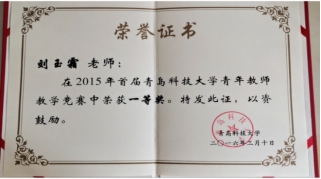 荣誉证书
刘玉霜 老师：
在2015年首届青岛科技大学青年教师
教学竞赛中荣获一等奖。特发此证，以资
鼓励。
青岛科技大学
二〇一六年二月十日